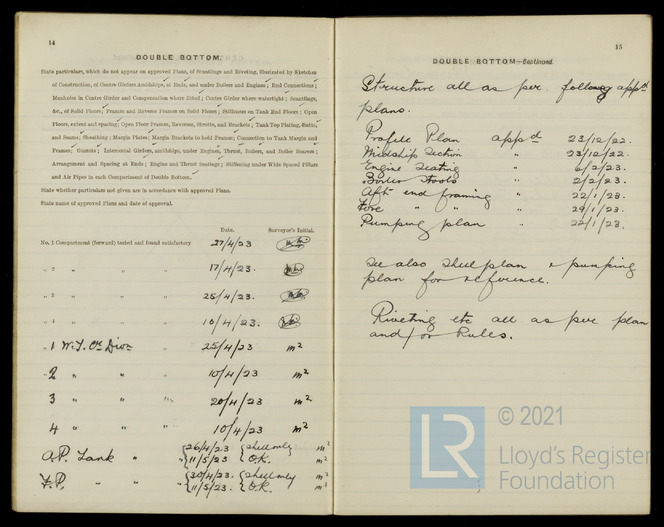 14
DOUBLE BOTTOM.
State particulars, which do not appear on approved Plans, of Scantlings and Riveting, illustrated by Sketches
of Construction, of Centre Girders Amidships, at Ends, and under Boilers and Engines; End Connections;
Manholes in Centre Girder and Compensation where fitted; Centre Girders where watertight; Scantlings,
&c., of Solid Floors; Frames and Reverse Frames on Solid Floors; Stiffeners on Tank End Floors; Open
Floors, extent and spacing; Open Floor Frames, Reverses, Struts, and Brackets; Tank Top Plating, Butts,
and Seams; Sheathing; Margin Plates; Margin Brackets to hold Frames; Connection to Tank Margin and
Frames; Gussets; Intercostal Girders, amidships, under Engines, Thrust, Boilers, and Boiler Bearers;
Arrangement and Spacing at Ends; Engine and Thrust Seatings; Stiffening under Wide Spaced Pillars
and Air Pipes in each Compartment of Double Bottom.
State whether particulars not given are in accordance with approved Plans.
State name of approved Plans and date of approval.
Date. Surveyor's Initial.
No. 1 Compartment (forward) tested and found satisfactory 27/4/23
" 2 " " " 17/4/23.
" 3 " " " 25/4/23.
" 4 " " " 10/4/23.
" 1 W.T. Divn " 25/4/23 m²
" 2 " " 10/4/23 m²
3 " " " 20/4/23 m²
4 " " 10/4/23 m²
A.P. Tank " " { 26/4/23 { Shell only m²
11/5/23 { O.K. m²
F.P. " " " { 30/4/23. { Shell only m²
11/5/23. { O.K. m²
15
DOUBLE BOTTOM—Continued.
Structure all as per following appd
plans.
Profile Plan appd 23/12/22.
Midship Section " 23/12/22.
Engine Seating " 2/2/23.
Boiler Stools " 2/2/23.
Aft end framing " 22/1/23.
Fore " " " 29/1/23.
Pumping plan " 22/1/23.
See also Shell plan & pumping
plan for reference.
Riveting etc all as per plan
and/or Rules.
LR
© 2021
Lloyd's Register
Foundation